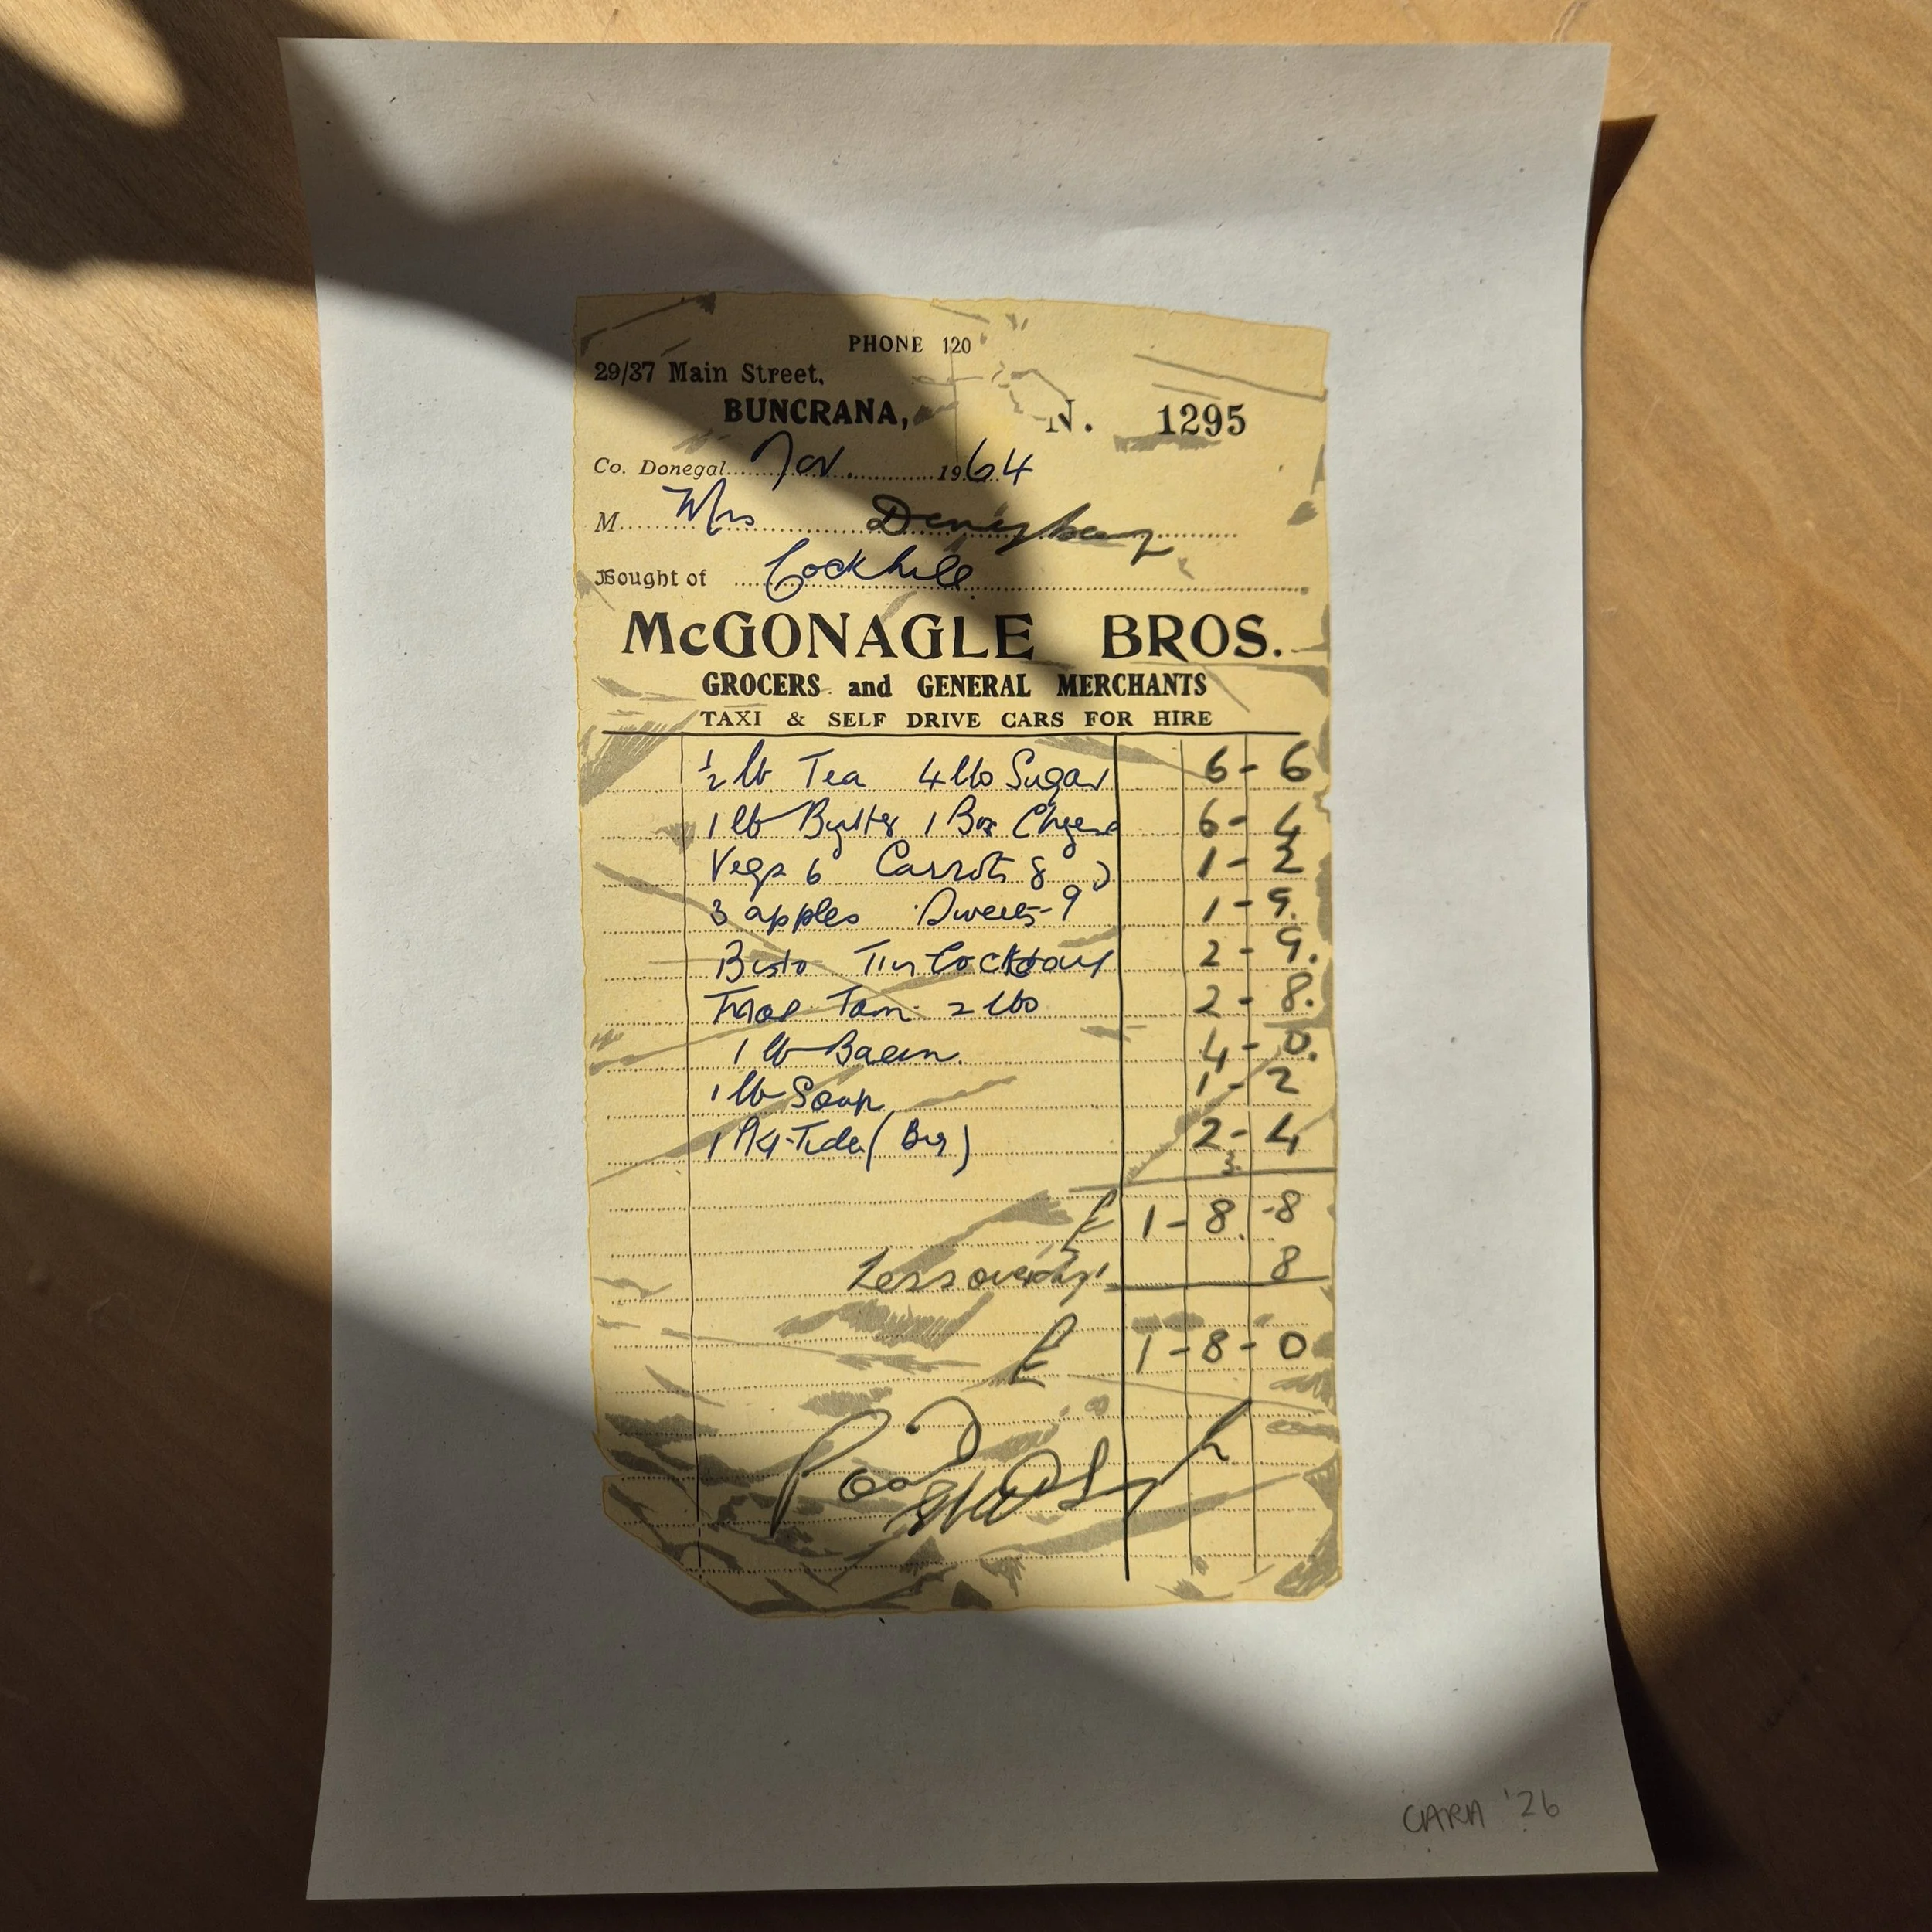 PHONE 120
29/37 Main Street,
BUNCRANA, N. 1295
Co. Donegal Nov. 1964
M Mrs
Bought of Cockhill
McGONAGLE BROS.
GROCERS and GENERAL MERCHANTS
TAXI & SELF DRIVE CARS FOR HIRE
½ lb Tea 4 lbs Sugar 6 - 6
1 lb Butter 1 Box Cheese 6 - 4
Vegs 6 Carrots 8 1 - 2
3 apples Sweets - 9 1 - 9.
Bisto Tin Cocktail 2 - 9.
2 lbs 2 - 8.
1 lb Bacon. 4 - 0.
1 lb Soap 1 - 2
1 Pkt Tide (Big) 2 - 4
3
£ 1 - 8. - 8
Less 8
£ 1 - 8 - 0
CIARA '26